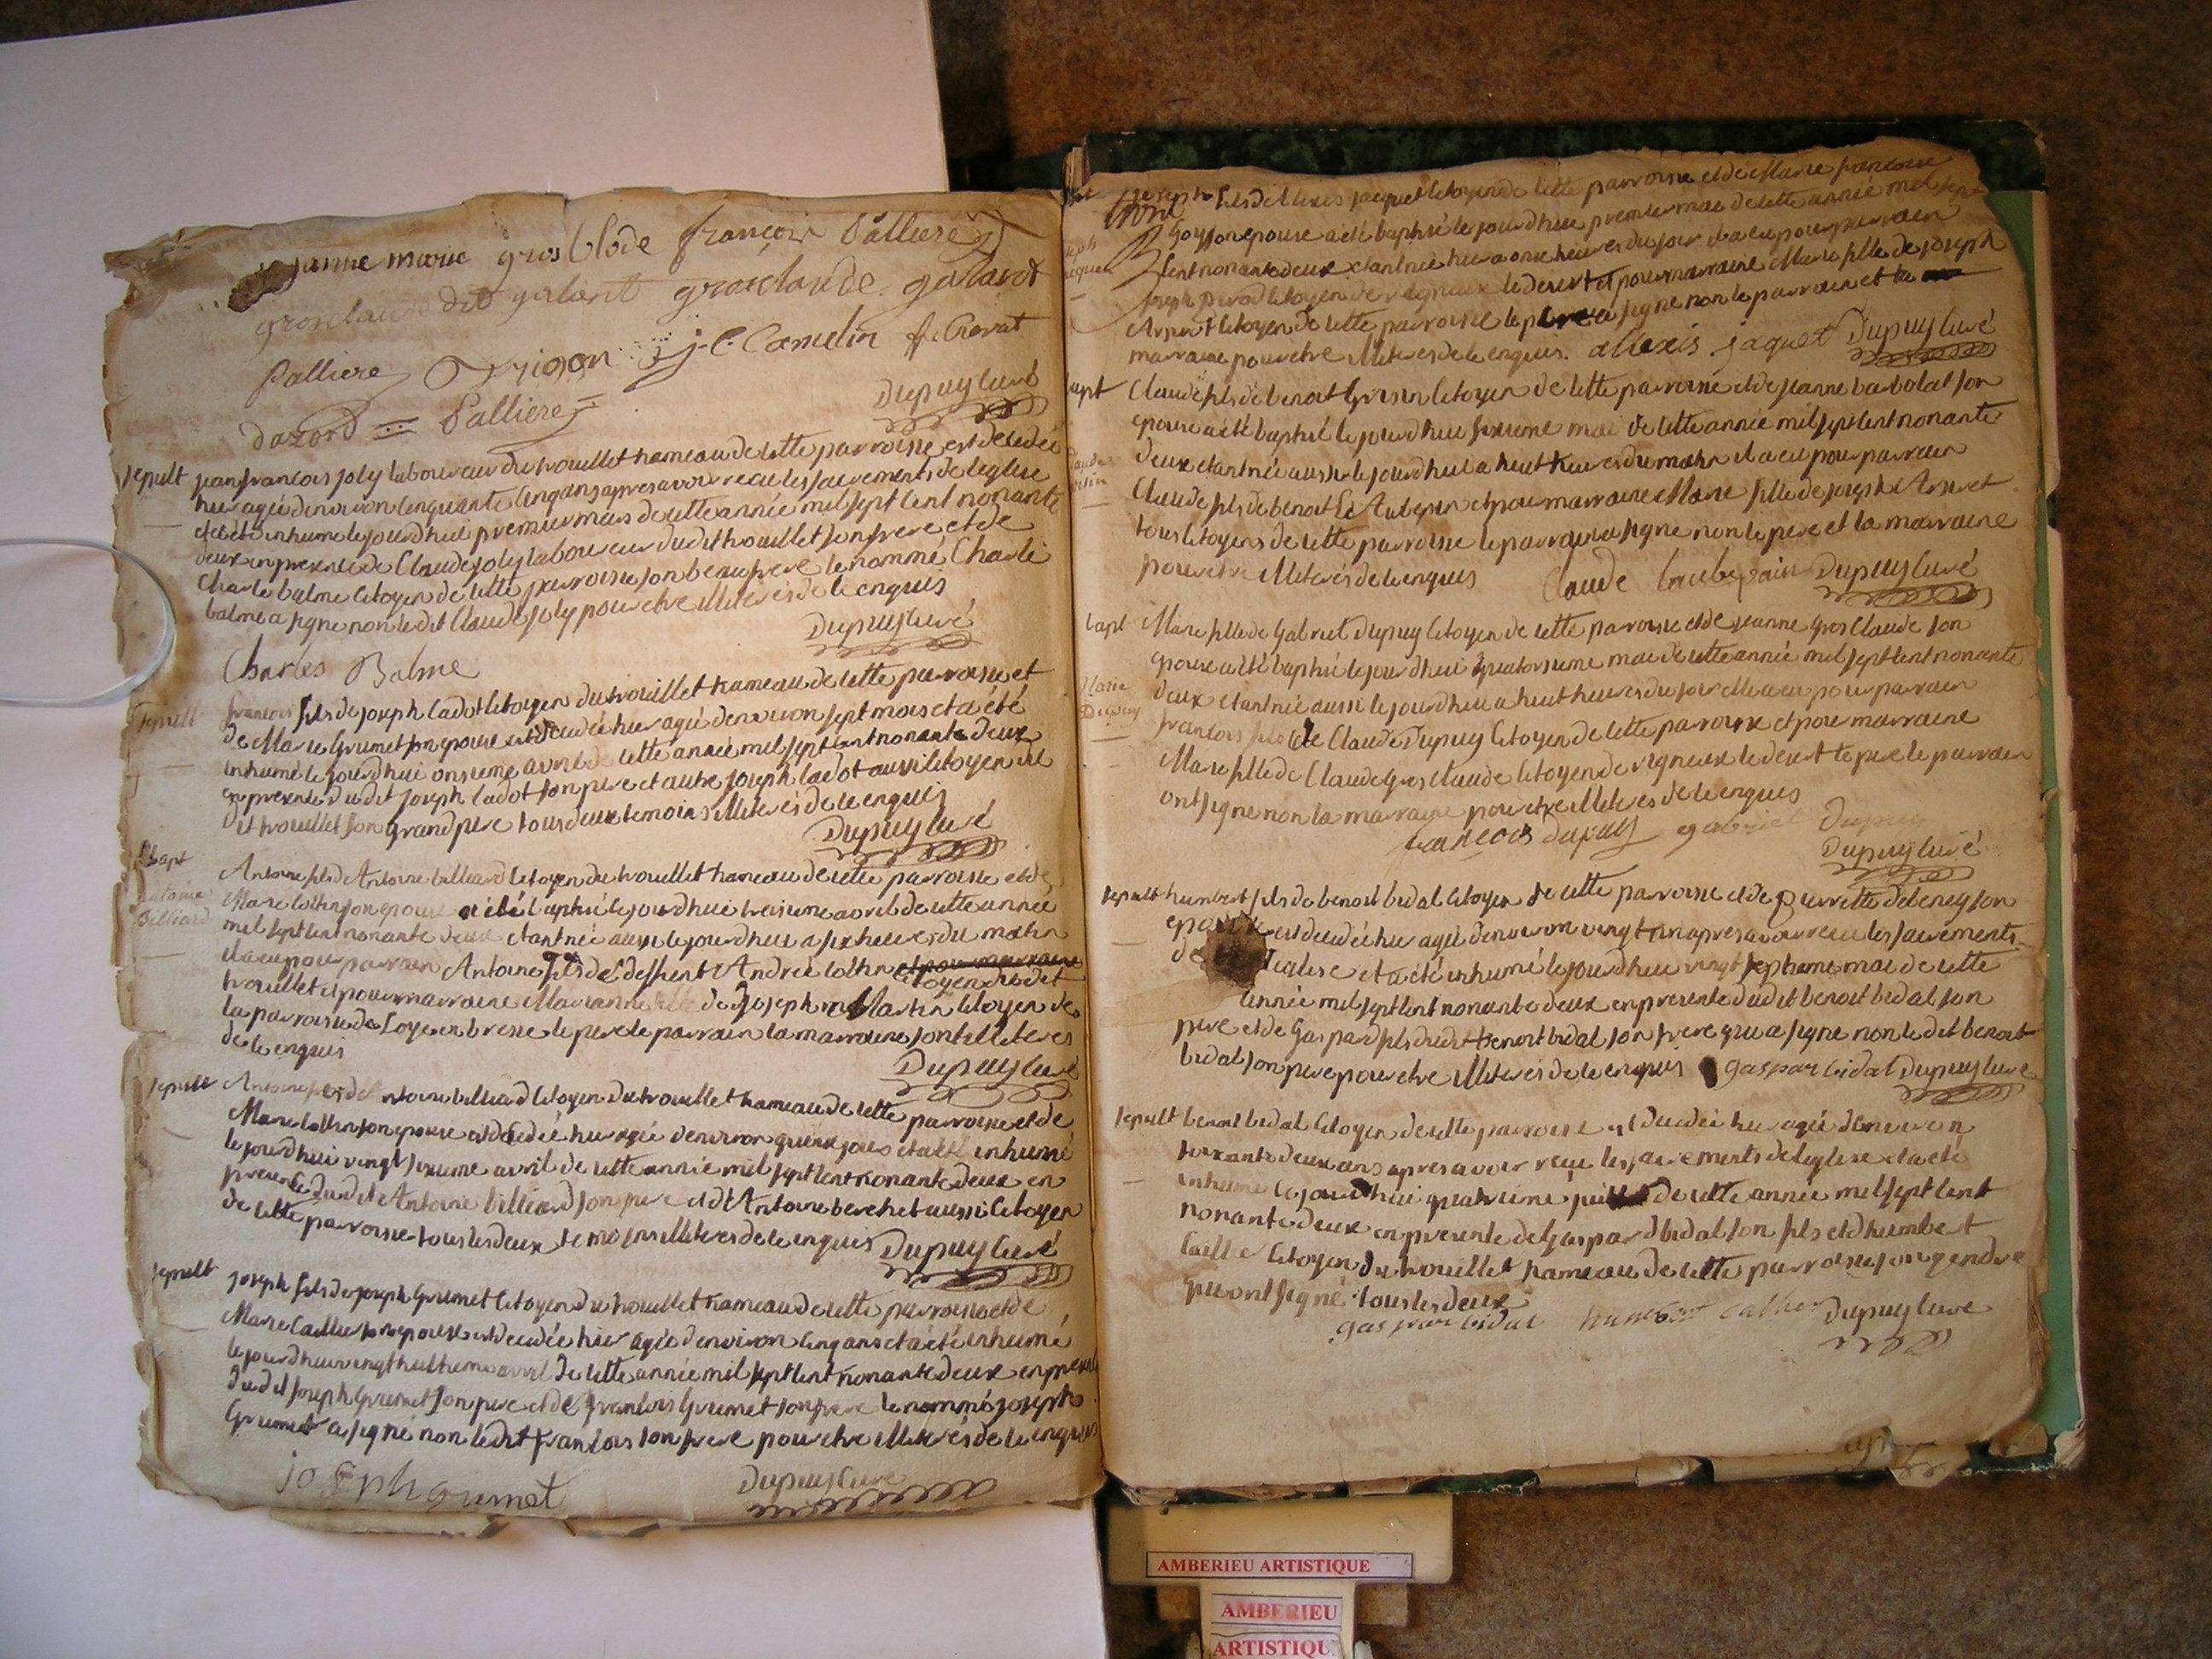 jeanne marie gros Clode françois Palliere
grosclaude dit galant grosclaude galavot
Palliere Orrigon j. C. Camelin f. Cravat
dazord Palliere Dupuy curé
sepult jean francois joly laboureur du trouillet hameau de cette parroisse est decedée
hier agée d'environ cinquante cinq ans apres avoir recu les sacrements de l'eglise
et a été inhumé le jourdhui premier mars de cette année mil sept cent nonante
deux en presence de Claude joly laboureur dudit trouillet son frere et de
Charle balme citoyen de cette parroisse son beaufrere le nommé Charle
balme a signe non le dit Claude joly pour etre illiterés de ce enquis
Dupuy curé
Charles Balme
sepult francois fils de joseph Cadot citoyen du trouillet hameau de cette parroisse et
de Marie Grumet son epouse est decedée hier agée d'environ sept mois et a été
inhumé le jourdhui onsieme avril de cette année mil sept cent nonante deux
en presence dudit joseph Cadot son pere et autre joseph Cadot aussi citoyen du
dit trouillet son grand pere tous deux temoins illiterés de ce enquis
Dupuy curé
bapt Antoine fils de Antoine billiard citoyen du trouillet hameau de cette parroisse et de
Antoine Billiard
Marie Cottin son epouse a été baptisé le jourdhui treisieme avril de cette année
mil sept cent nonante deux etant née aussi le jourdhui a six heures du matin
il a eu pour parrain Antoine fils de deffunt André Cottin et pour marraine
citoyen dudit
trouillet et pour marraine Marianne fille de joseph Martin citoyen de
la parroisse de Loye en bresse le pere le parrain la marraine sont illiteres
de ce enquis
Dupuy curé
sepult Antoine fils de antoine billiard citoyen du trouillet hameau de cette parroisse et de
Marie Cottin son epouse est decedée hier agée d'environ quinze jours et a été inhumé
le jourdhui vingt sixieme avril de cette année mil sept cent nonante deux en
presence dudit Antoine billiard son pere et d'Antoine berchet aussi citoyen
de cette parroisse tous les deux temoins illiteres de ce enquis Dupuy curé
sepult joseph fils de joseph Grumet citoyen du trouillet hameau de cette parroisse et de
Marie Caillier son epouse est decedée hier agée d'environ cinq ans et a été inhumé
le jourdhui vingt huitieme avril de cette année mil sept cent nonante deux en presence
dudit joseph Grumet son pere et de francois Grumet son frere le nommé joseph
Grumet a signé non ledit francois son frere pour etre illiterés de ce enquis
joseph Grumet Dupuy curé
bapt joseph fils de Alexis jaquet citoyen de cette parroisse et de Marie francoise
Goy son epouse a été baptisé le jourdhui premier mai de cette année mil sept
cent nonante deux etant née hier a onse heures du soir il a eu pour parrain
joseph citoyen de vigneux le desert et pour marraine Marie fille de joseph
citoyen de cette parroisse le pere a signe non le parrain et la
marraine pour etre illiteres de ce enquis. alexis jaquet Dupuy curé
bapt Claude fils de benoit Grisin citoyen de cette parroisse et de jeanne barbolat son
epouse a été baptisé le jourdhui sixieme mai de cette année mil sept cent nonante
deux etant née aussi le jourdhui a huit heures du matin il a eu pour parrain
Claude fils de benoit et pour marraine Marie fille de joseph
tous citoyens de cette parroisse le parrain a signe non le pere et la marraine
pour etre illiterés de ce enquis Claude Dupuy curé
bapt Marie fille de Gabriel Dupuy citoyen de cette parroisse et de jeanne Gros Claude son
epouse a été baptisée le jourdhui quatorsieme mai de cette année mil sept cent nonante
Marie Dupuy
deux etant née aussi le jourdhui a huit heures du soir elle a eu pour parrain
francois fils de Claude Dupuy citoyen de cette parroisse et pour marraine
Marie fille de Claude Gros Claude citoyen de vigneux le desert le pere le parrain
ont signe non la marraine pour etre illiteres de ce enquis
francois dupuy gabriel Dupuy
Dupuy curé
sepult humbert fils de benoit bidal citoyen de cette parroisse et de pierrette debeney son
epouse est decedée hier agée d'environ vingt un apres avoir recu les sacrements
de l'eglise et a été inhumé le jourdhui vingt septieme mai de cette
année mil sept cent nonante deux en presence dudit benoit bidal son
pere et de Gaspard fils dudit benoit bidal son frere qui a signe non le dit benoit
bidal son pere pour etre illiterés de ce enquis gaspar bidal Dupuy curé
sepult benoit bidal citoyen de cette parroisse est decedée hier agée d'environ
soixante deux ans apres avoir reçu les sacrements de l'eglise et a été
inhumé le jourdhui quatrieme de cette année mil sept cent
nonante deux en presence de Gaspard bidal son fils et d'humbert
Caillier citoyen du trouillet hameau de cette parroisse son gendre
qui ont signé tous les deux
gaspar bidal humbert callier Dupuy curé
AMBERIEU ARTISTIQUE
AMBERIEU
ARTISTIQU